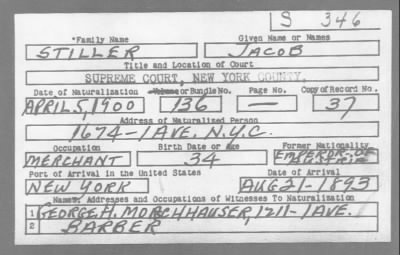 S 346
*Family Name Given Name or Names
STILLER JACOB
Title and Location of Court
SUPREME COURT, NEW YORK COUNTY.
Date of Naturalization Volume or Bundle No. Page No. Copy of Record No.
APRIL 5, 1900 136 — 37
Address of Naturalized Person
1674-1 AVE. N.Y.C.
Occupation Birth Date or Age Former Nationality
MERCHANT 34 EMPEROR OF AUSTRIA
Port of Arrival in the United States Date of Arrival
NEW YORK AUG 21-1893
Names, Addresses and Occupations of Witnesses To Naturalization
1 GEORGE H. MORCHHAUSER, 1211-1 AVE.
2 BARBER